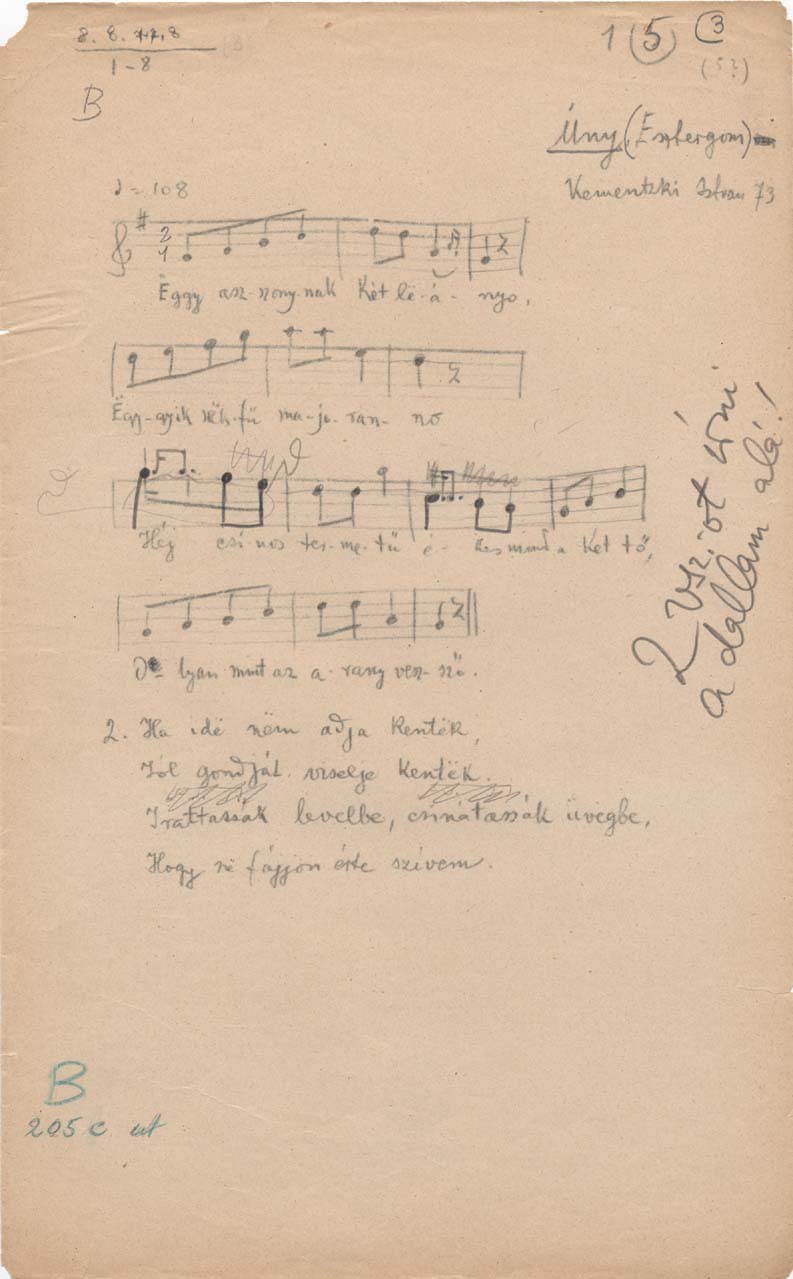 8. 8. 7.7.8
1-8
1 (5) (3)
(5?)
B
Úny (Esztergom)
Kementzki Istvan 73
♩ = 108
2
4
Ëggy asz-szony-nak Két lë-á-nyo,
Ëgy-gyik zëk-fü ma-jo-ran-no
Héj csi-nos ter-me-tü é-kes mind a Ket tő,
O-lyan mint az a-rany vesz-sző.
2. Ha idë nëm adja Kentëk,
Jól gondját viselje Kentëk.
Irattassák levelbe, csinátassák üvegbe,
Hogy në fájjon érte szívem.
2 vsz.-ot írni
a dallam alá!
B
205 c. ut